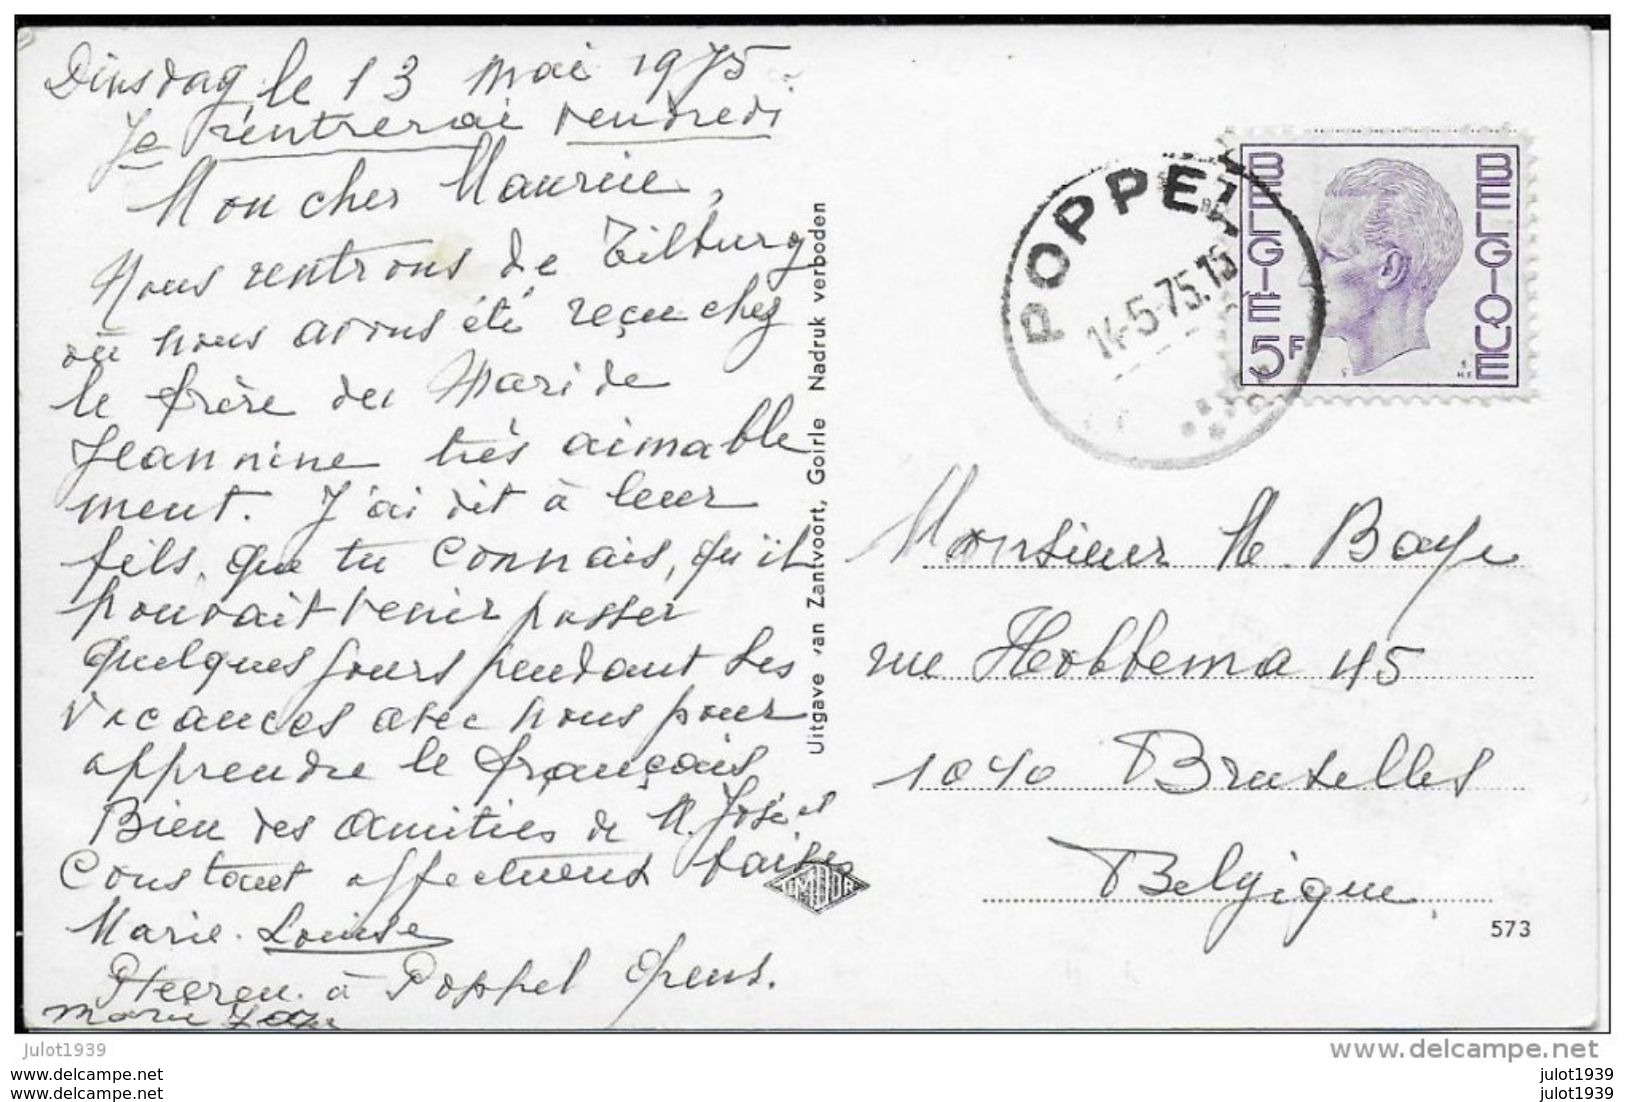 Dinsdag le 13 mai 1975
Je rentrerai vendredi
Mon cher Maurice,
Nous rentrons de Tilburg
où nous avons été reçu chez
le frère du Mari de
Jeannine très aimable
ment. J'ai dit à leur
fils, que tu connais, qu'il
pouvait venir passer
quelques jours pendant les
vacances avec nous pour
apprendre le français
Bien des amitiés de M. José et
Constant affectueux baisers
Marie-Louise
à Poppel
Uitgave van Zantvoort, Goirle Nadruk verboden
POPPEL
14-5-75.15
BELGIË
BELGIQUE
5F
Monsieur M. Baye
rue Hobbema 45
1040 Bruxelles
Belgique
573
julot1939
www.delcampe.net
www.delcampe.net
www.delcampe.net
julot1939
julot1939